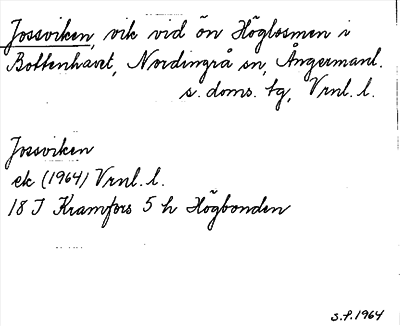 Jossviken, vik vid ön Höglosmen i
Bottenhavet, Nordingrå sn, Ångermanl.
s. doms. tg, Vrnl. l.
Jossviken
ek (1964) Vrnl. l.
18 I Kramfors 5 h Högbonden
S.F. 1964